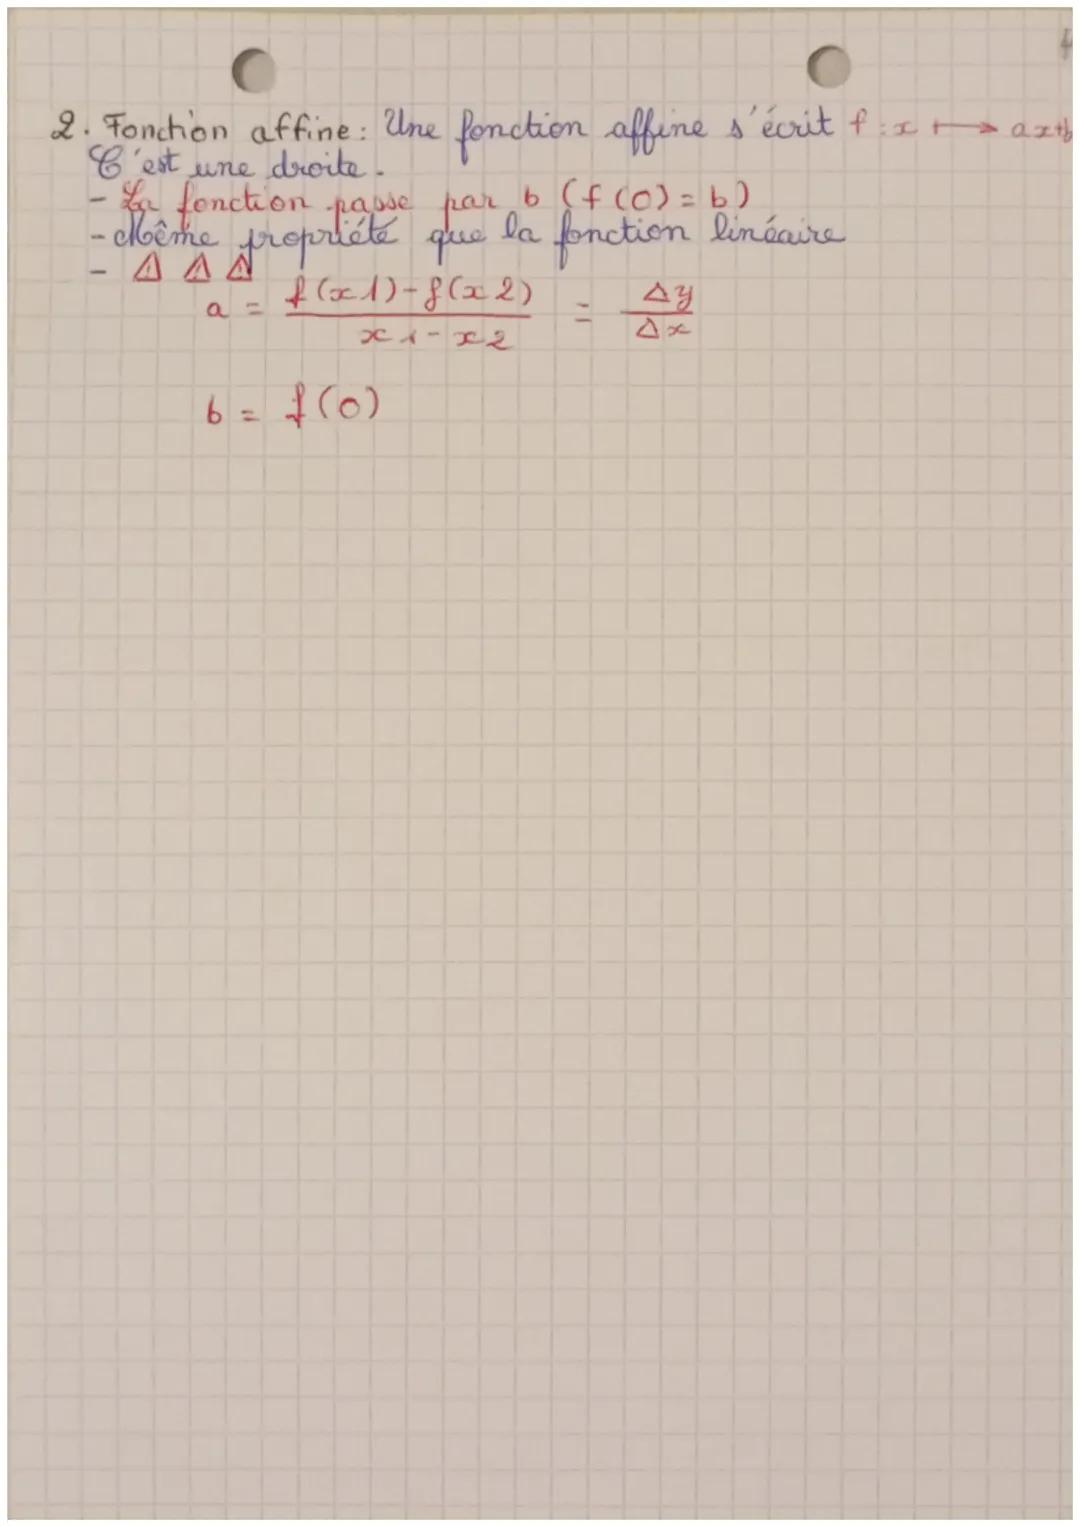 2. Fonction affine : Une fonction affine s'écrit f : x ⟼ ax+b
C'est une droite.
- La fonction passe par b (f(0) = b)
- Même propriété que la fonction linéaire
- ⚠ ⚠ ⚠
a = f(x1) - f(x2) / x1 - x2 = Δy / Δx
b = f(0)